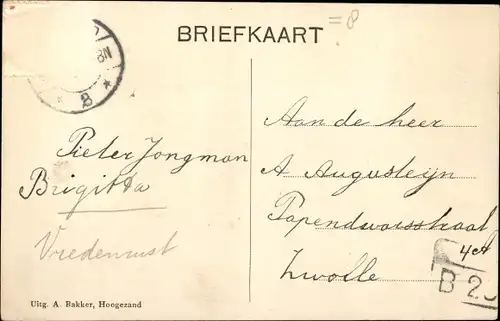 = 8
BRIEFKAART
8N
8
Pieter Jongman
Brigitta
Vredenrust
Aan de heer
A Augusteijn
Papendwarsstraat
4 et
Zwolle
B 2
Uitg. A. Bakker, Hoogezand